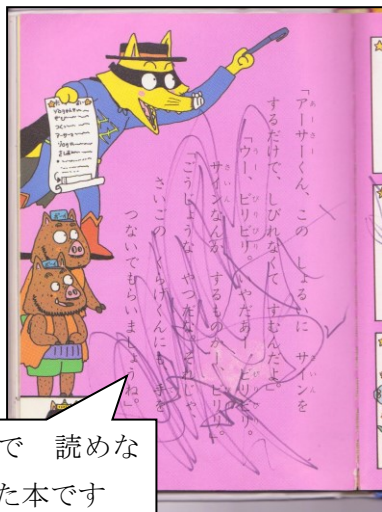 「アーサーくん、この しょるいに サインを
するだけで、しびれなくて すむんだよ」
「ウー、ビリビリ。 やだあー、ビリビリ。
サインなんか するものか、ビリリ」
「ごうじょうな やつだな。それじゃ、
さいごの くらげくんにも 手を
つないでもらいましょうね」
で 読めな
た本です